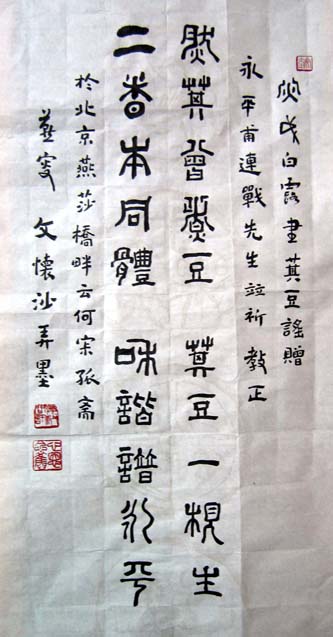 戌白露書萁豆謠贈
永平甫連戰先生竝祈教正
然萁曾煮豆 萁豆一根生
二者本同體 咊諧譜永平
於北京燕莎橋畔云何宋孤斋
燕叟 文懷沙弄墨